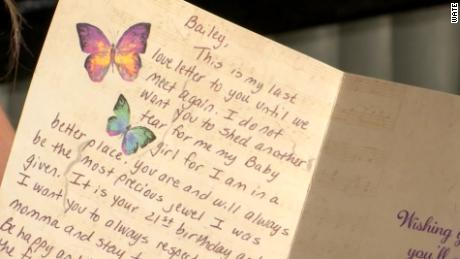 Bailey,
This is my last
love letter to you until we
meet again. I do not
want you to shed another
tear for me my Baby
girl for I am in a
better place. you are and will always
be the most precious jewel I was
given. It is your 21st birthday and
I want you to always respect
momma and stay
Be happy
Wishing
you'll
WATE